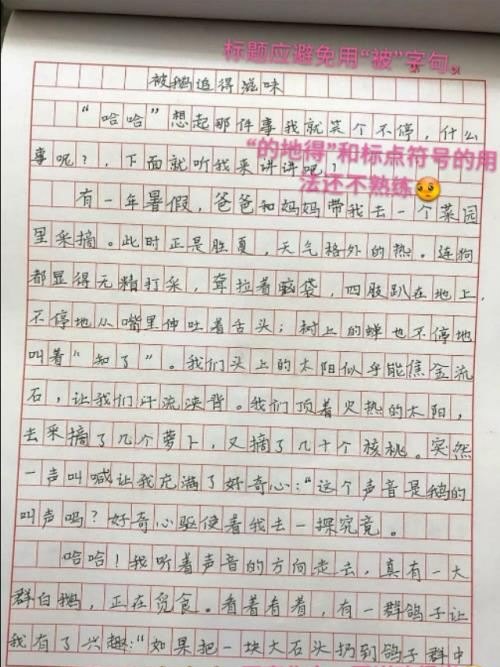 标题应避免用“被”字句。
被鹅追得滋味
“哈哈”想起那件事我就笑个不停，什么
事呢？，下面就听我来讲讲吧？
“的地得”和标点符号的用
法还不熟练
有一年暑假，爸爸和妈妈带我去一个菜园
里采摘。此时正是胜夏，天气格外的热。连狗
都显得无精打采，耷拉着脑袋，四肢趴在地上，
不停地从嘴里伸吐着舌头；树上的蝉也不停地
叫着“知了”。我们头上的太阳似乎能焦金流
石，让我们汗流浃背。我们顶着火热的太阳，
去采摘了几个萝卜，又摘了几十个核桃。突然
一声叫喊让我充满了好奇心：“这个声音是鹅的
叫声吗？好奇心驱使着我去一探究竟。
哈哈！我听着声音的方向走去，真有一大
群白鹅，正在觅食。看着看着，有一群鸽子让
我有了兴趣：“如果把一块大石头扔到鸽子群中